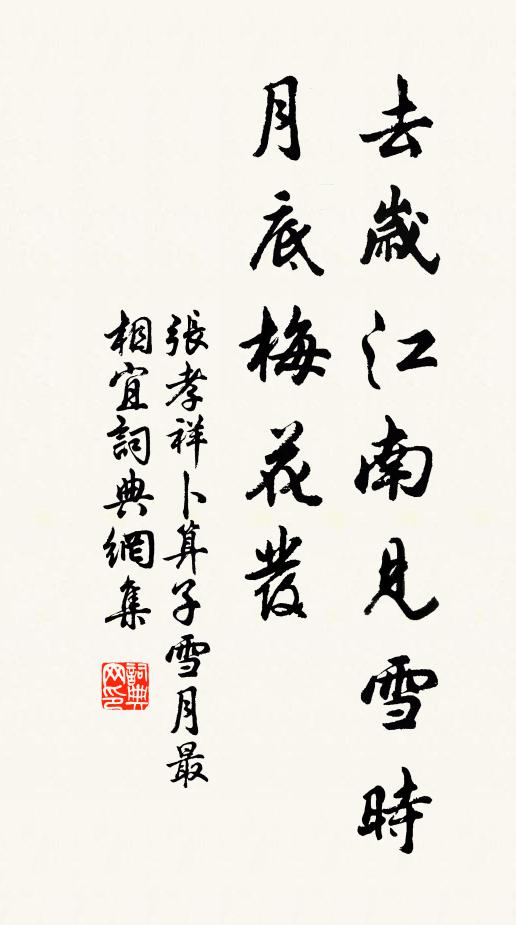 去歲江南見雪時
月底梅花發
張孝祥卜算子雪月最
相宜詞典網集
詞典
网印